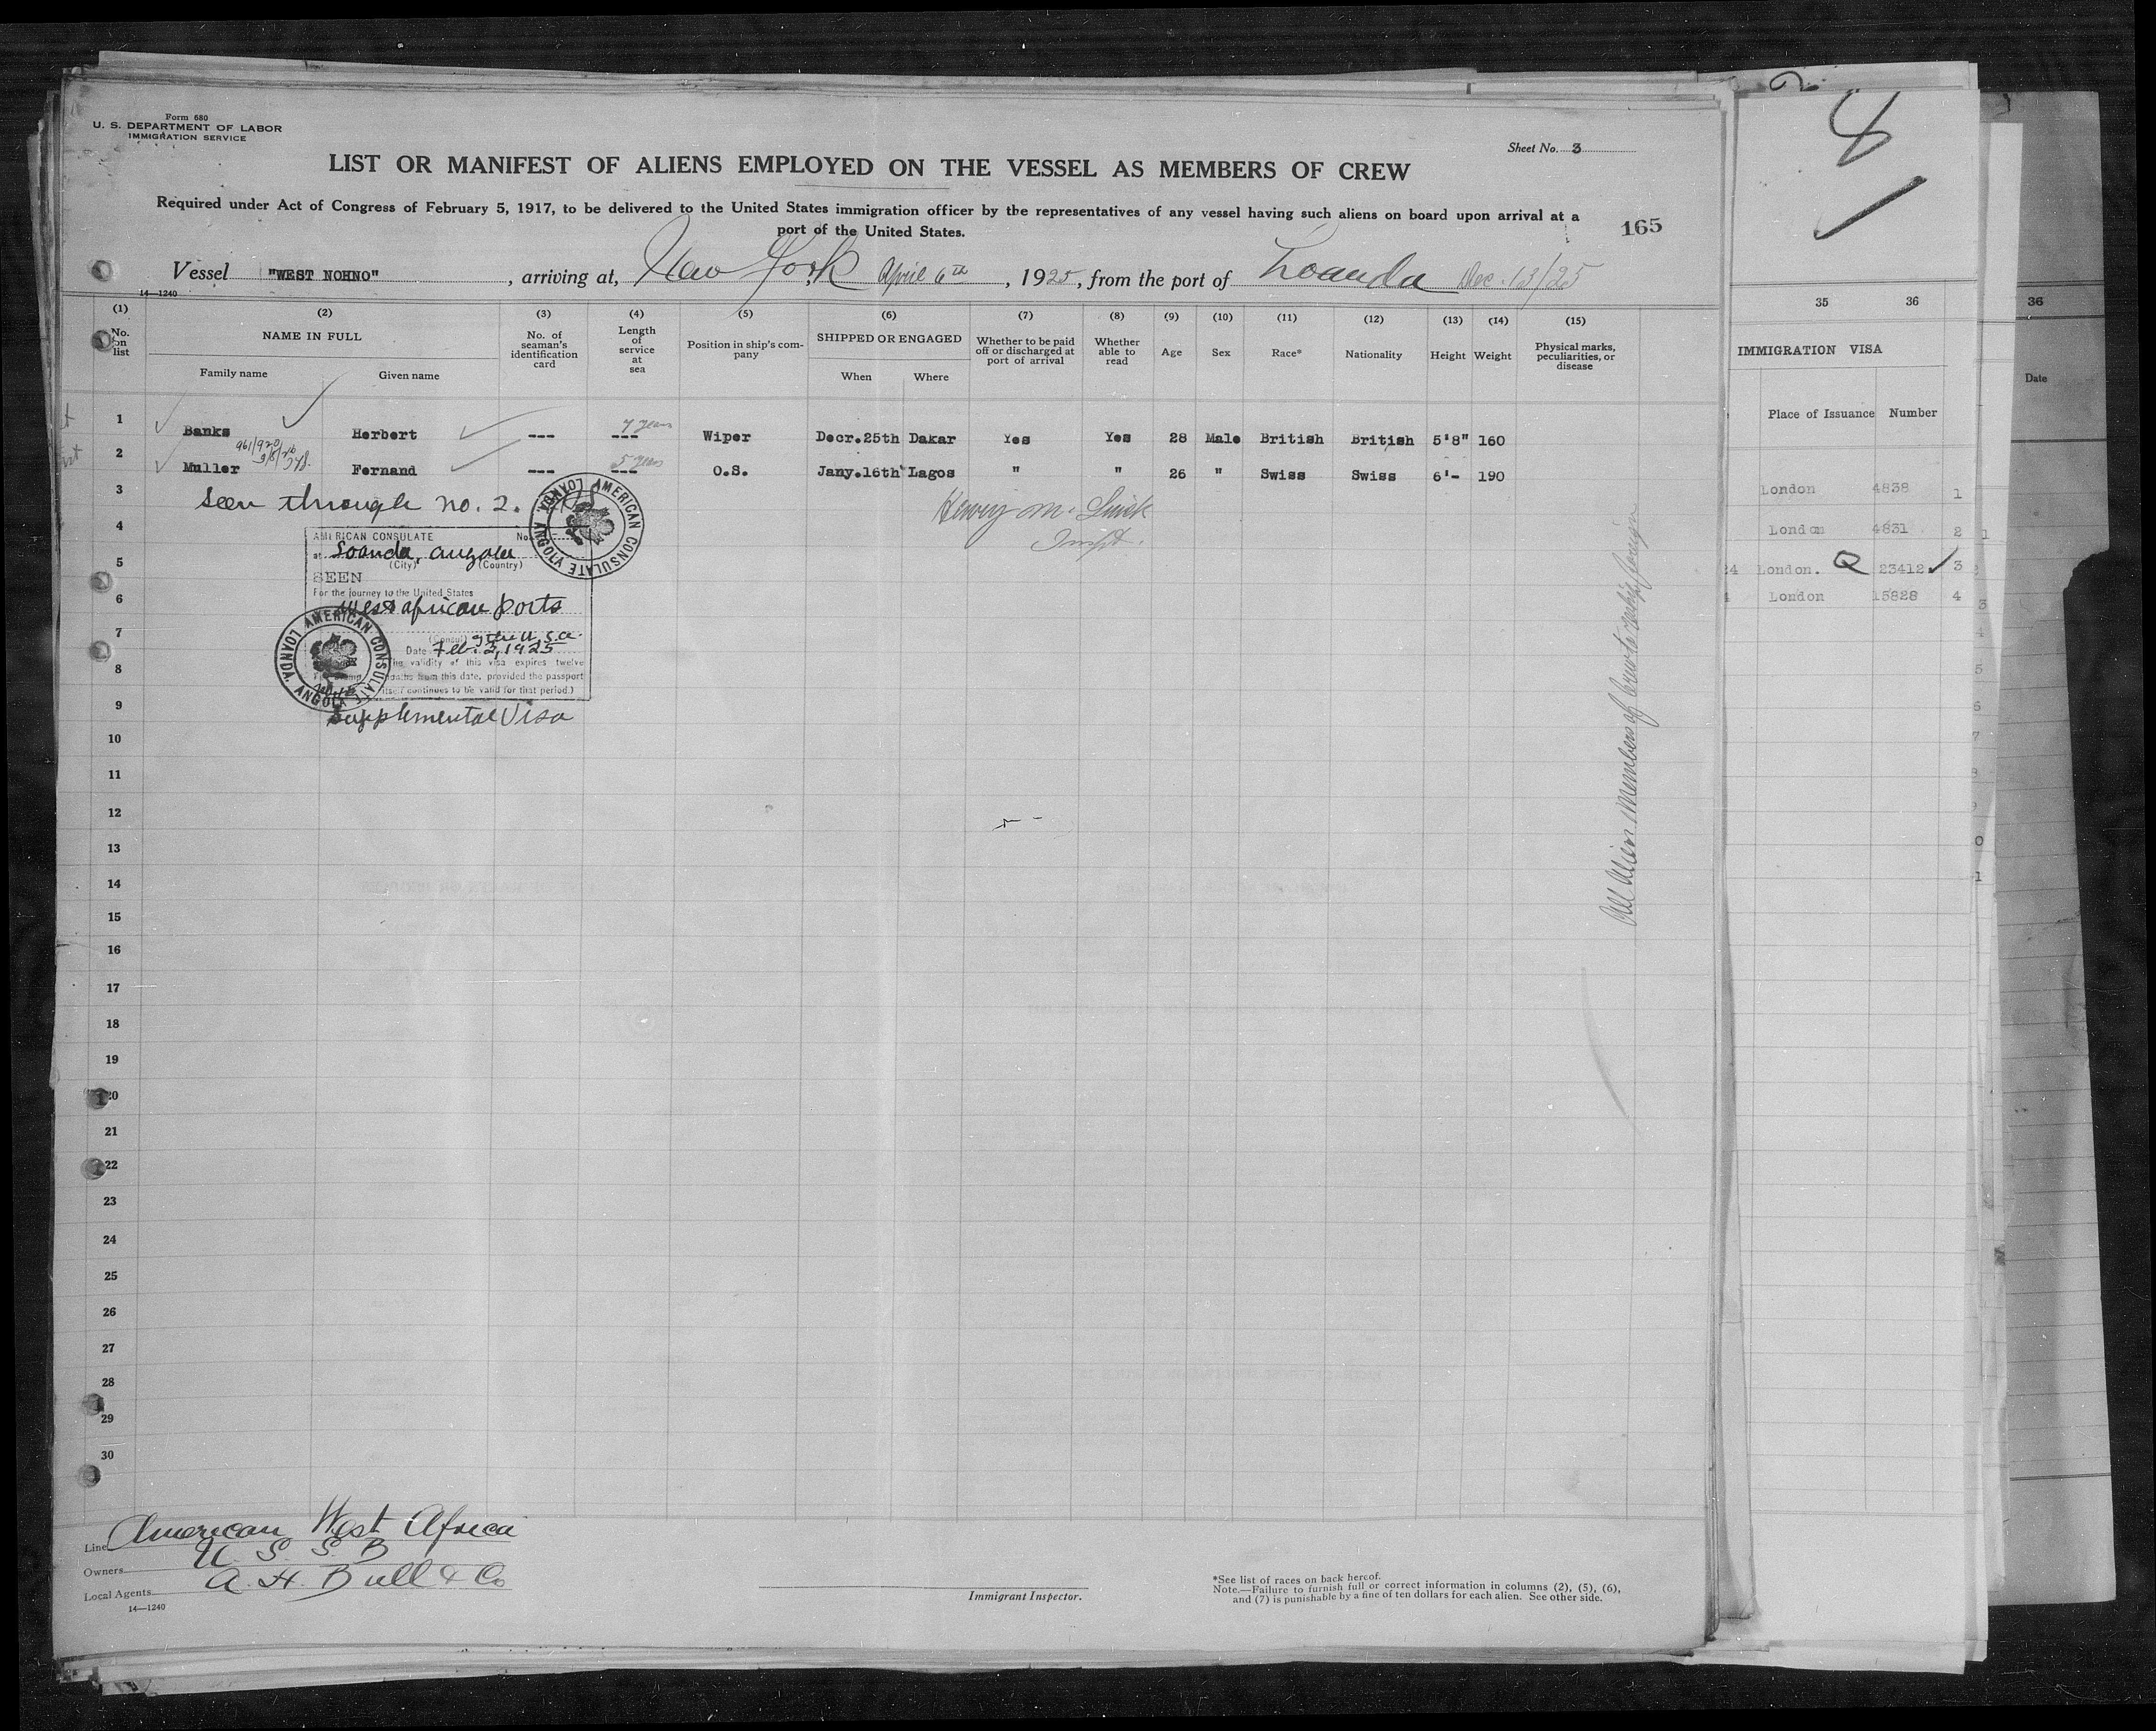 Form 680
U. S. DEPARTMENT OF LABOR
IMMIGRATION SERVICE
Sheet No. 3
LIST OR MANIFEST OF ALIENS EMPLOYED ON THE VESSEL AS MEMBERS OF CREW
Required under Act of Congress of February 5, 1917, to be delivered to the United States immigration officer by the representatives of any vessel having such aliens on board upon arrival at a
port of the United States.
165
Vessel "WEST NOHNO", arriving at, New York April 6th, 1925, from the port of Loanda Dec. 13/25
14—1240
(1) (2) (3) (4) (5) (6) (7) (8) (9) (10) (11) (12) (13) (14) (15)
No. on list
NAME IN FULL
Family name Given name
No. of seaman's identification card
Length of service at sea
Position in ship's company
SHIPPED OR ENGAGED
When Where
Whether to be paid off or discharged at port of arrival
Whether able to read
Age
Sex
Race*
Nationality
Height
Weight
Physical marks, peculiarities, or disease
1 Banks Herbert --- 7 years --- Wiper Decr. 25th Dakar Yes Yes 28 Male British British 5'8" 160
961/920
2 Muller Fernand --- 5 years --- O.S. Jany. 16th Lagos " " 26 " Swiss Swiss 6'- 190
3 Seen through no. 2.
AMERICAN CONSULATE LOANDA, ANGOLA
Henry M.
Inspt.
4
AMERICAN CONSULATE No.
at Loanda, Angola
(City) (Country)
5
SEEN
For the journey to the United States
6
West african ports
7
(Consul) of the U.S.A.
Date Feb. 2, 1925
8
(The validity of this visa expires twelve
months from this date, provided the passport
itself continues to be valid for that period.)
AMERICAN CONSULATE LOANDA, ANGOLA
9
Supplemental Visa
10
11
12
13
14
15
16
17
18
19
20
21
22
23
24
25
26
27
28
29
30
All Alien Members of Crew to reship foreign
Line American West Africa
Owners U. S. S. B
Local Agents A. H. Bull & Co
14—1240
Immigrant Inspector.
*See list of races on back hereof.
Note.—Failure to furnish full or correct information in columns (2), (5), (6),
and (7) is punishable by a fine of ten dollars for each alien. See other side.
8
35 36
IMMIGRATION VISA
Place of Issuance Number
London 4838 1
London 4831 2
24 London. 23412 3
London 15828 4
36
Date